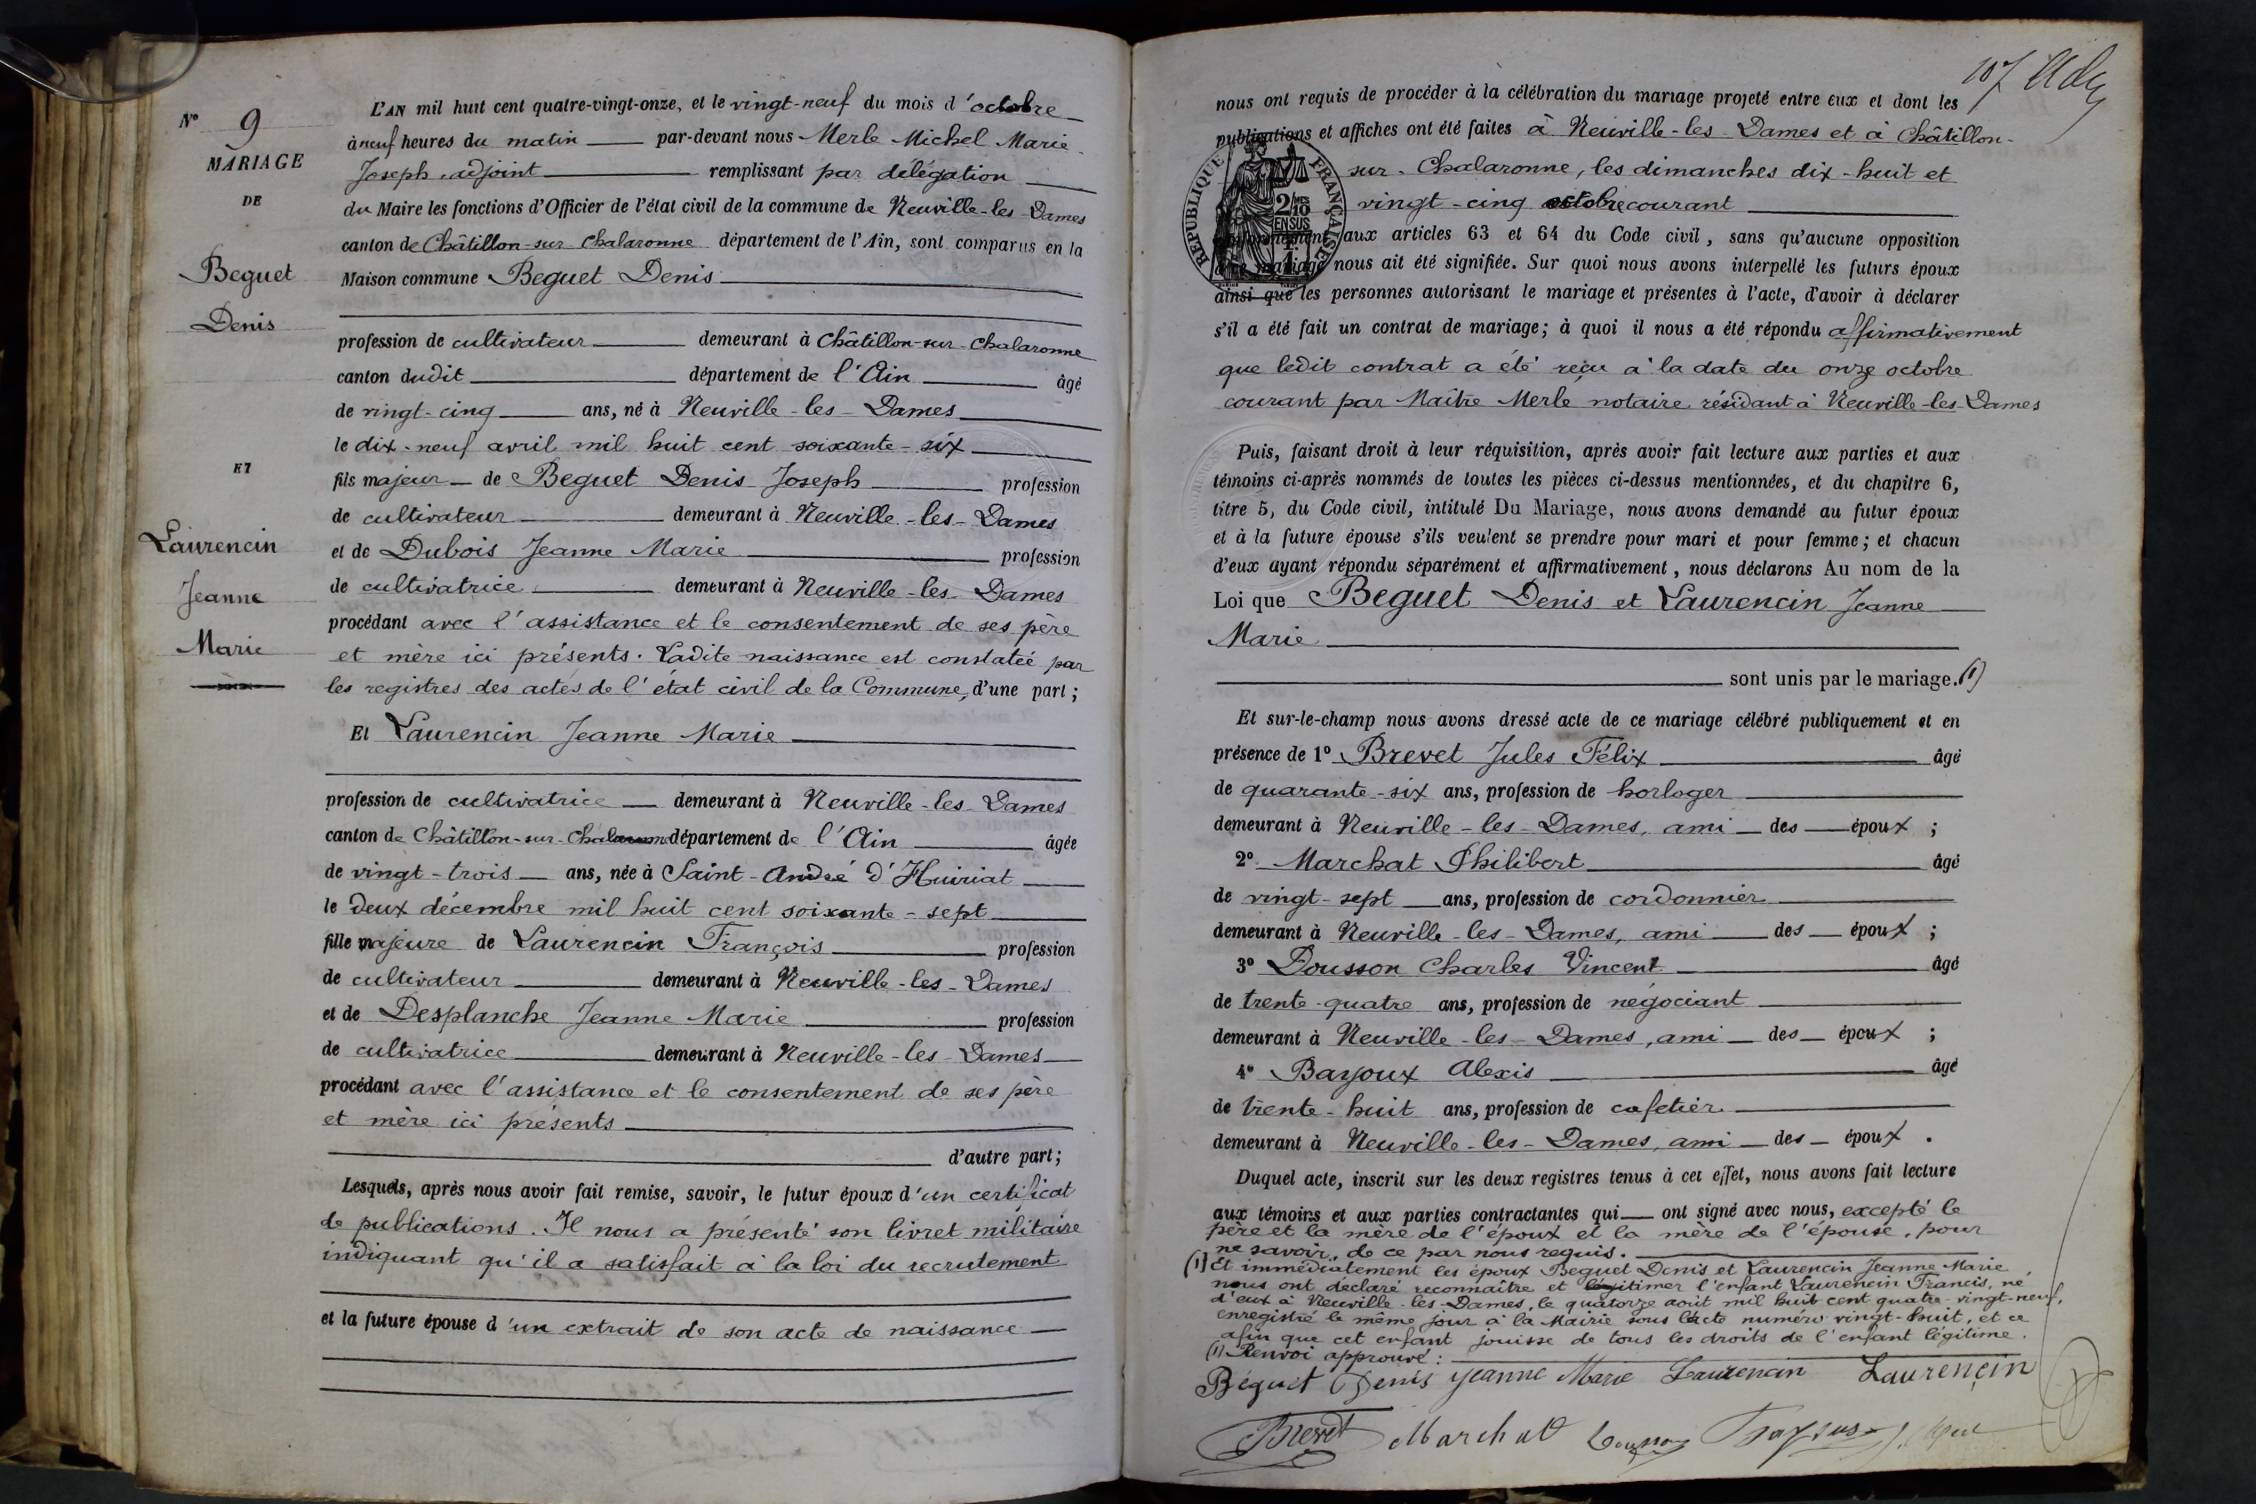 N° 9
MARIAGE
DE
Beguet
Denis
ET
Laurencin
Jeanne
Marie
L'AN mil huit cent quatre-vingt-onze, et le vingt-neuf du mois d'octobre
à neuf heures du matin par-devant nous Merle Michel Marie
Joseph, adjoint remplissant par délégation
du Maire les fonctions d'Officier de l'état civil de la commune de Neuville-les-Dames
canton de Châtillon-sur-Chalaronne département de l'Ain, sont comparus en la
Maison commune Beguet Denis
profession de cultivateur demeurant à Châtillon-sur-Chalaronne
canton dudit département de l'Ain âgé
de vingt-cinq ans, né à Neuville-les-Dames
le dix-neuf avril mil huit cent soixante-six
fils majeur de Beguet Denis Joseph profession
de cultivateur demeurant à Neuville-les-Dames
et de Dubois Jeanne Marie profession
de cultivatrice demeurant à Neuville-les-Dames
procédant avec l'assistance et le consentement de ses père
et mère ici présents. Ladite naissance est constatée par
les registres des actes de l'état civil de la Commune, d'une part;
Et Laurencin Jeanne Marie
profession de cultivatrice demeurant à Neuville-les-Dames
canton de Châtillon-sur-Chalaronne département de l'Ain âgée
de vingt-trois ans, née à Saint-André d'Huiriat
le deux décembre mil huit cent soixante-sept
fille majeure de Laurencin François profession
de cultivateur demeurant à Neuville-les-Dames
et de Desplanche Jeanne Marie profession
de cultivatrice demeurant à Neuville-les-Dames
procédant avec l'assistance et le consentement de ses père
et mère ici présents
d'autre part;
Lesquels, après nous avoir fait remise, savoir, le futur époux d'un certificat
de publications. Il nous a présenté son livret militaire
indiquant qu'il a satisfait à la loi du recrutement
et la future épouse d'un extrait de son acte de naissance
107
nous ont requis de procéder à la célébration du mariage projeté entre eux et dont les
publications et affiches ont été faites à Neuville-les-Dames et à Châtillon-
sur-Chalaronne, les dimanches dix-huit et
vingt-cinq octobre courant
RÉPUBLIQUE FRANÇAISE
2/10 EN SUS
conformément aux articles 63 et 64 du Code civil, sans qu'aucune opposition
à ce mariage nous ait été signifiée. Sur quoi nous avons interpellé les futurs époux
ainsi que les personnes autorisant le mariage et présentes à l'acte, d'avoir à déclarer
s'il a été fait un contrat de mariage; à quoi il nous a été répondu affirmativement
que ledit contrat a été reçu à la date du onze octobre
courant par Maître Merle notaire résidant à Neuville-les-Dames
Puis, faisant droit à leur réquisition, après avoir fait lecture aux parties et aux
témoins ci-après nommés de toutes les pièces ci-dessus mentionnées, et du chapitre 6,
titre 5, du Code civil, intitulé Du Mariage, nous avons demandé au futur époux
et à la future épouse s'ils veulent se prendre pour mari et pour femme; et chacun
d'eux ayant répondu séparément et affirmativement, nous déclarons Au nom de la
Loi que Beguet Denis et Laurencin Jeanne
Marie
sont unis par le mariage. (1)
Et sur-le-champ nous avons dressé acte de ce mariage célébré publiquement et en
présence de 1° Brevet Jules Félix âgé
de quarante-six ans, profession de horloger
demeurant à Neuville-les-Dames, ami des époux ;
2° Marchat Philibert âgé
de vingt-sept ans, profession de cordonnier
demeurant à Neuville-les-Dames, ami des époux ;
3° Dousson Charles Vincent âgé
de trente-quatre ans, profession de négociant
demeurant à Neuville-les-Dames, ami des époux ;
4° Bayoux Alexis âgé
de trente-huit ans, profession de cafetier
demeurant à Neuville-les-Dames, ami des époux .
Duquel acte, inscrit sur les deux registres tenus à cet effet, nous avons fait lecture
aux témoins et aux parties contractantes qui ont signé avec nous, excepté le
père et la mère de l'époux et la mère de l'épouse, pour
ne savoir, de ce par nous requis.
(1) Et immédiatement les époux Beguet Denis et Laurencin Jeanne Marie
nous ont déclaré reconnaître et légitimer l'enfant Laurencin Francis, né
d'eux à Neuville-les-Dames, le quatorze août mil huit cent quatre-vingt-neuf,
enregistré le même jour à la Mairie sous l'acte numéro vingt-huit, et ce
afin que cet enfant jouisse de tous les droits de l'enfant légitime.
(1) Renvoi approuvé :
Béguet Denis Jeanne Marie Laurencin Laurencin
Brevet Marchat